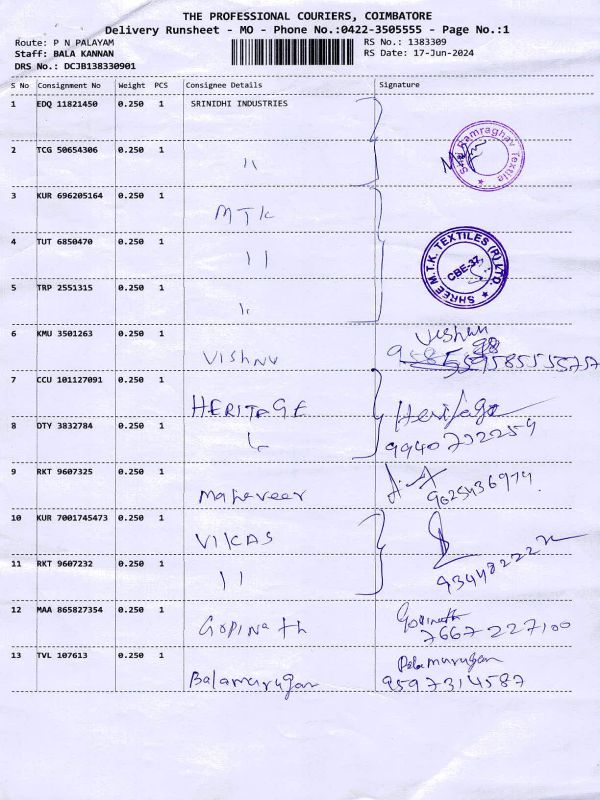 THE PROFESSIONAL COURIERS, COIMBATORE
Delivery Runsheet - MO - Phone No.:0422-3505555 - Page No.:1
Route: P N PALAYAM RS No.: 1383309
Staff: BALA KANNAN RS Date: 17-Jun-2024
DRS No.: DCJB138330901
S No Consignment No Weight PCS Consignee Details Signature
1 EDQ 11821450 0.250 1 SRINIDHI INDUSTRIES
2 TCG 50654306 0.250 1 "
Shri Ramraghav Textile
3 KUR 696205164 0.250 1 MTK
4 TUT 6850470 0.250 1 "
SHREE M.T.K. TEXTILES (R) LTD.
CBE-37
5 TRP 2551315 0.250 1 "
6 KMU 3501263 0.250 1 VISHNU Vishnu
7 CCU 101127091 0.250 1 HERITAGE Heritage
8 DTY 3832784 0.250 1 " 9940732259
9 RKT 9607325 0.250 1 Mahaveer
10 KUR 7001745473 0.250 1 VIKAS
11 RKT 9607232 0.250 1 "
12 MAA 865827354 0.250 1 GOPINATH Gopinath
7667227100
13 TVL 107613 0.250 1 Balamurugan Balamurugan
9597314587